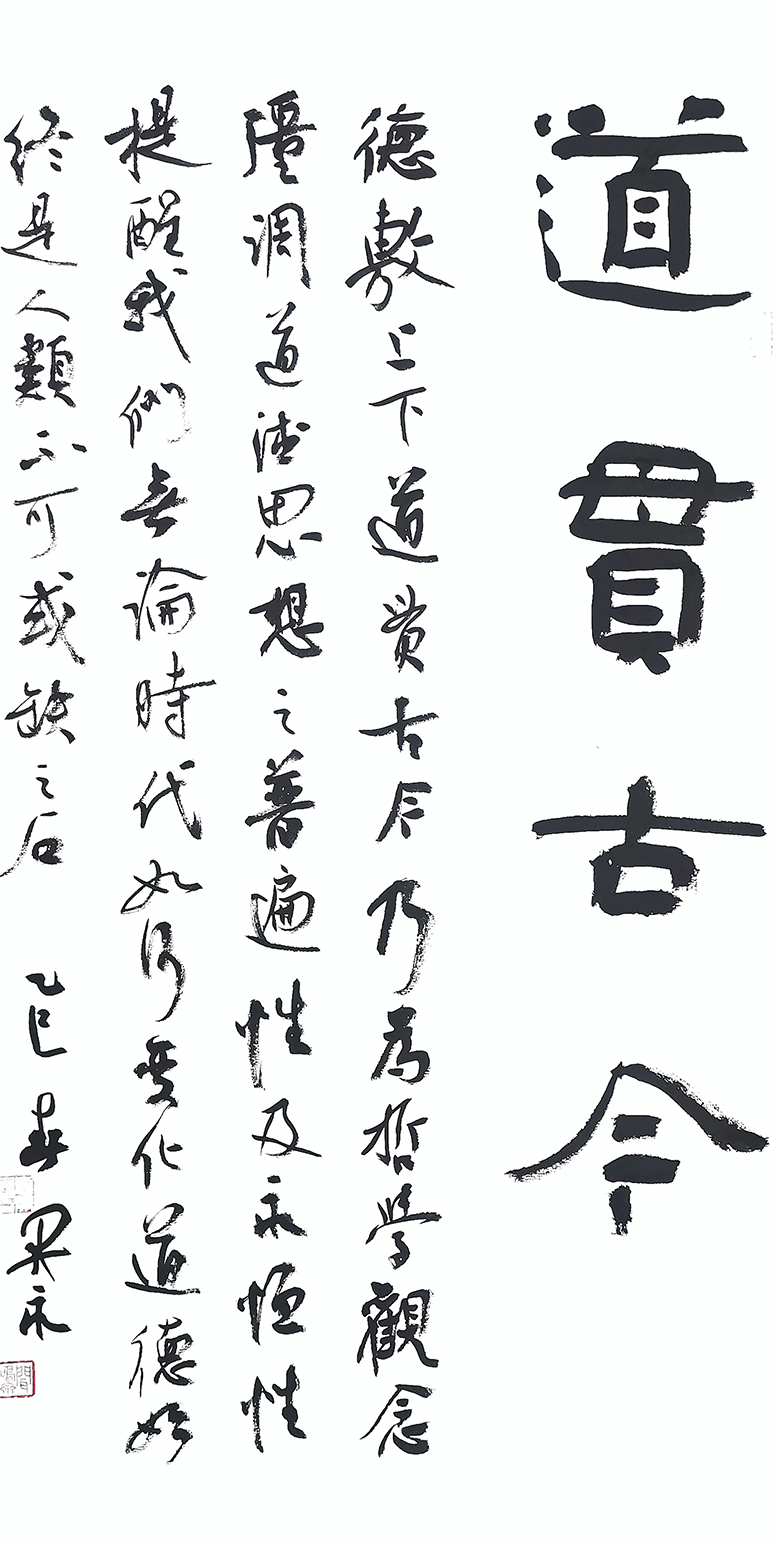 道貫古今
德敷上下道貫古今乃為哲學觀念
彊調道德思想之普遍性及永恒性
提醒我們無論時代如何變化道德始
終是人類不可或缺之石 乙巳春 永